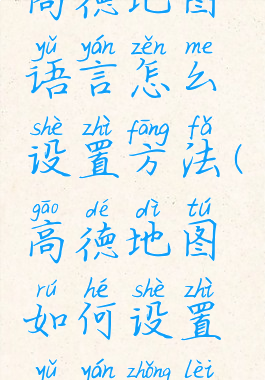 高德地图
yǔ yán zěn me
语言怎么
shè zhì fāng fǎ
设置方法(
gāo dé dì tú
高德地图
rú hé shè zhì
如何设置
yǔ yán zhǒng lèi